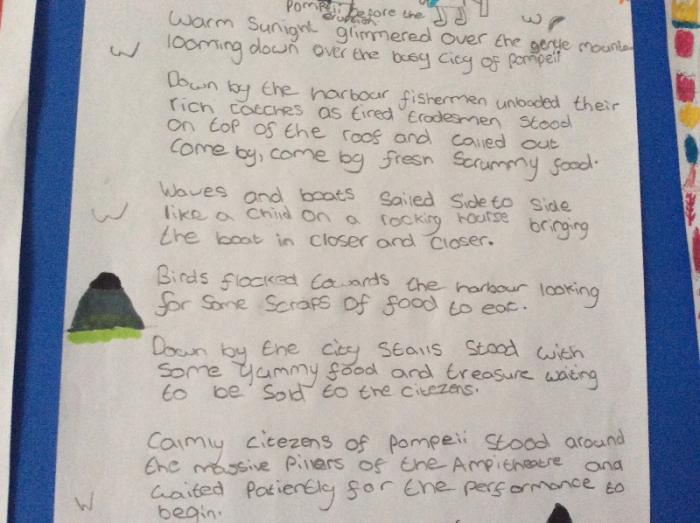 Pompeii before the
eruption
W
Warm Sunight glimmered over the gentle mountain
looming down over the busy City of Pompeii
W
Down by the harbour fishermen unloaded their
rich catches as tired tradesmen stood
on top of the roof and called out
Come by, come by fresh Scrummy food.
Waves and boats Sailed Side to Side
like a Child on a rocking hourse bringing
the boat in closer and closer.
W
Birds flocked towards the harbour looking
for Some Scraps Of food to eat.
Down by the city Stalls Stood with
Some yummy food and treasure waiting
to be Sold to the citezens.
Calmly citezens of Pompeii Stood around
the massive Pillers of the Ampitheatre and
waited Patiently for the performance to
begin.
W